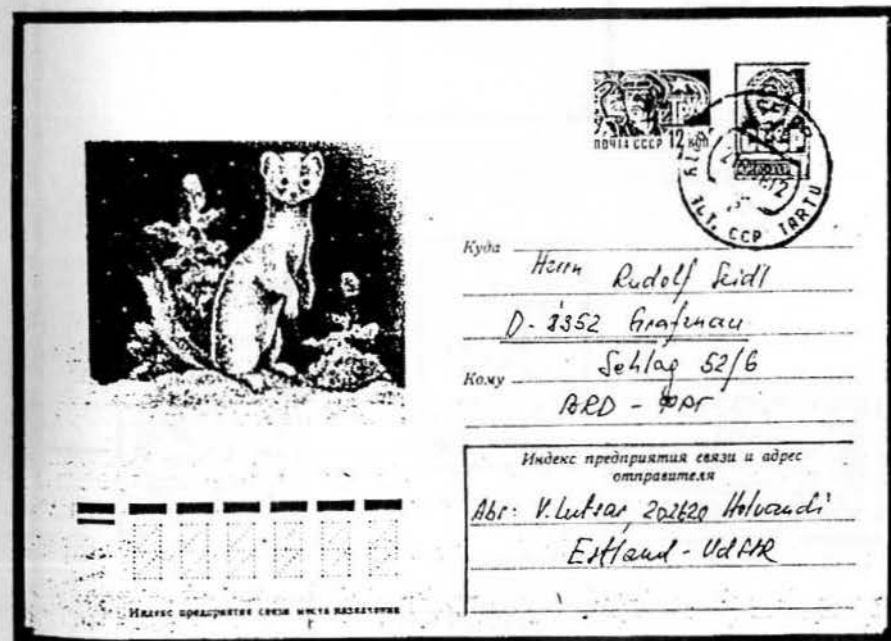 ПОЧТА СССР 12 коп
CCP TARTU
Куда
Herrn Rudolf Seidl
D-8352 Grafenau
Schlag 52/6
Кому
BRD - ФРГ
Индекс предприятия связи и адрес
отправителя
Abs: V. Lutsar 202620
Estland - UdSSR
Индекс предприятия связи места назначения